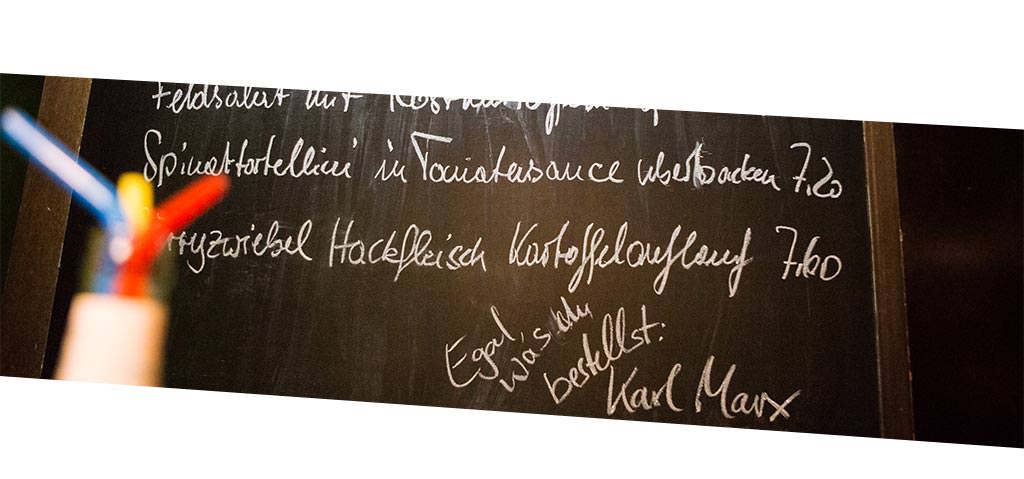 Feldsalat mit
Spinattortellini in Tomatensauce überbacken 7,20
ryzwiebel Hackfleisch Kartoffelauflauf 7,60
Egal,
was du
bestellst:
Karl Marx